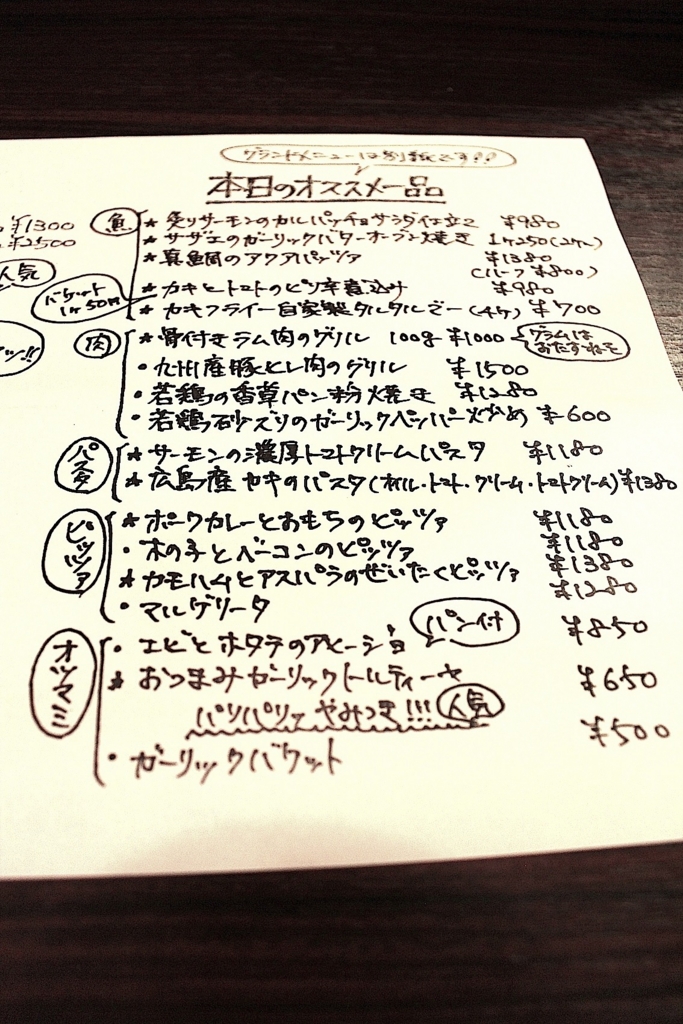 グランドメニューは別紙です!!
本日のオススメ一品
¥1300
¥2500
人気
魚
* 炙りサーモンのカルパッチョサラダ仕立て ¥980
* サザエのガーリックバターオーブン焼き 1ケ250(2ケ〜)
* 真鯛のアクアパッツァ ¥1380
(ハーフ ¥800)
バケット
1ケ50円
* カキとトマトのピリ辛煮込み ¥980
* カキフライー自家製タルタルでー(4ケ) ¥700
肉
* 骨付きラム肉のグリル 100g ¥1000
グラムは
おたずねを
・九州産豚とし肉のグリル ¥1500
・若鶏の香草パン粉焼き ¥1280
・若鶏砂ズリのガーリックペッパー炒め ¥600
パスタ
* サーモンの濃厚トマトクリームパスタ ¥1180
* 広島産カキのパスタ(オイル・トマト・クリーム・トマトクリーム) ¥1380
ピッツァ
* ポークカレーとおもちのピッツァ ¥1180
・木の子とベーコンのピッツァ ¥1180
* カモハムとアスパラのぜいたくピッツァ ¥1380
・マルゲリータ ¥1280
オツマミ
・エビとホタテのアヒージョ パン付 ¥850
* おつまみガーリックトルティーヤ ¥650
パリパリッやみつき!!! 人気
・ガーリックバケット ¥500